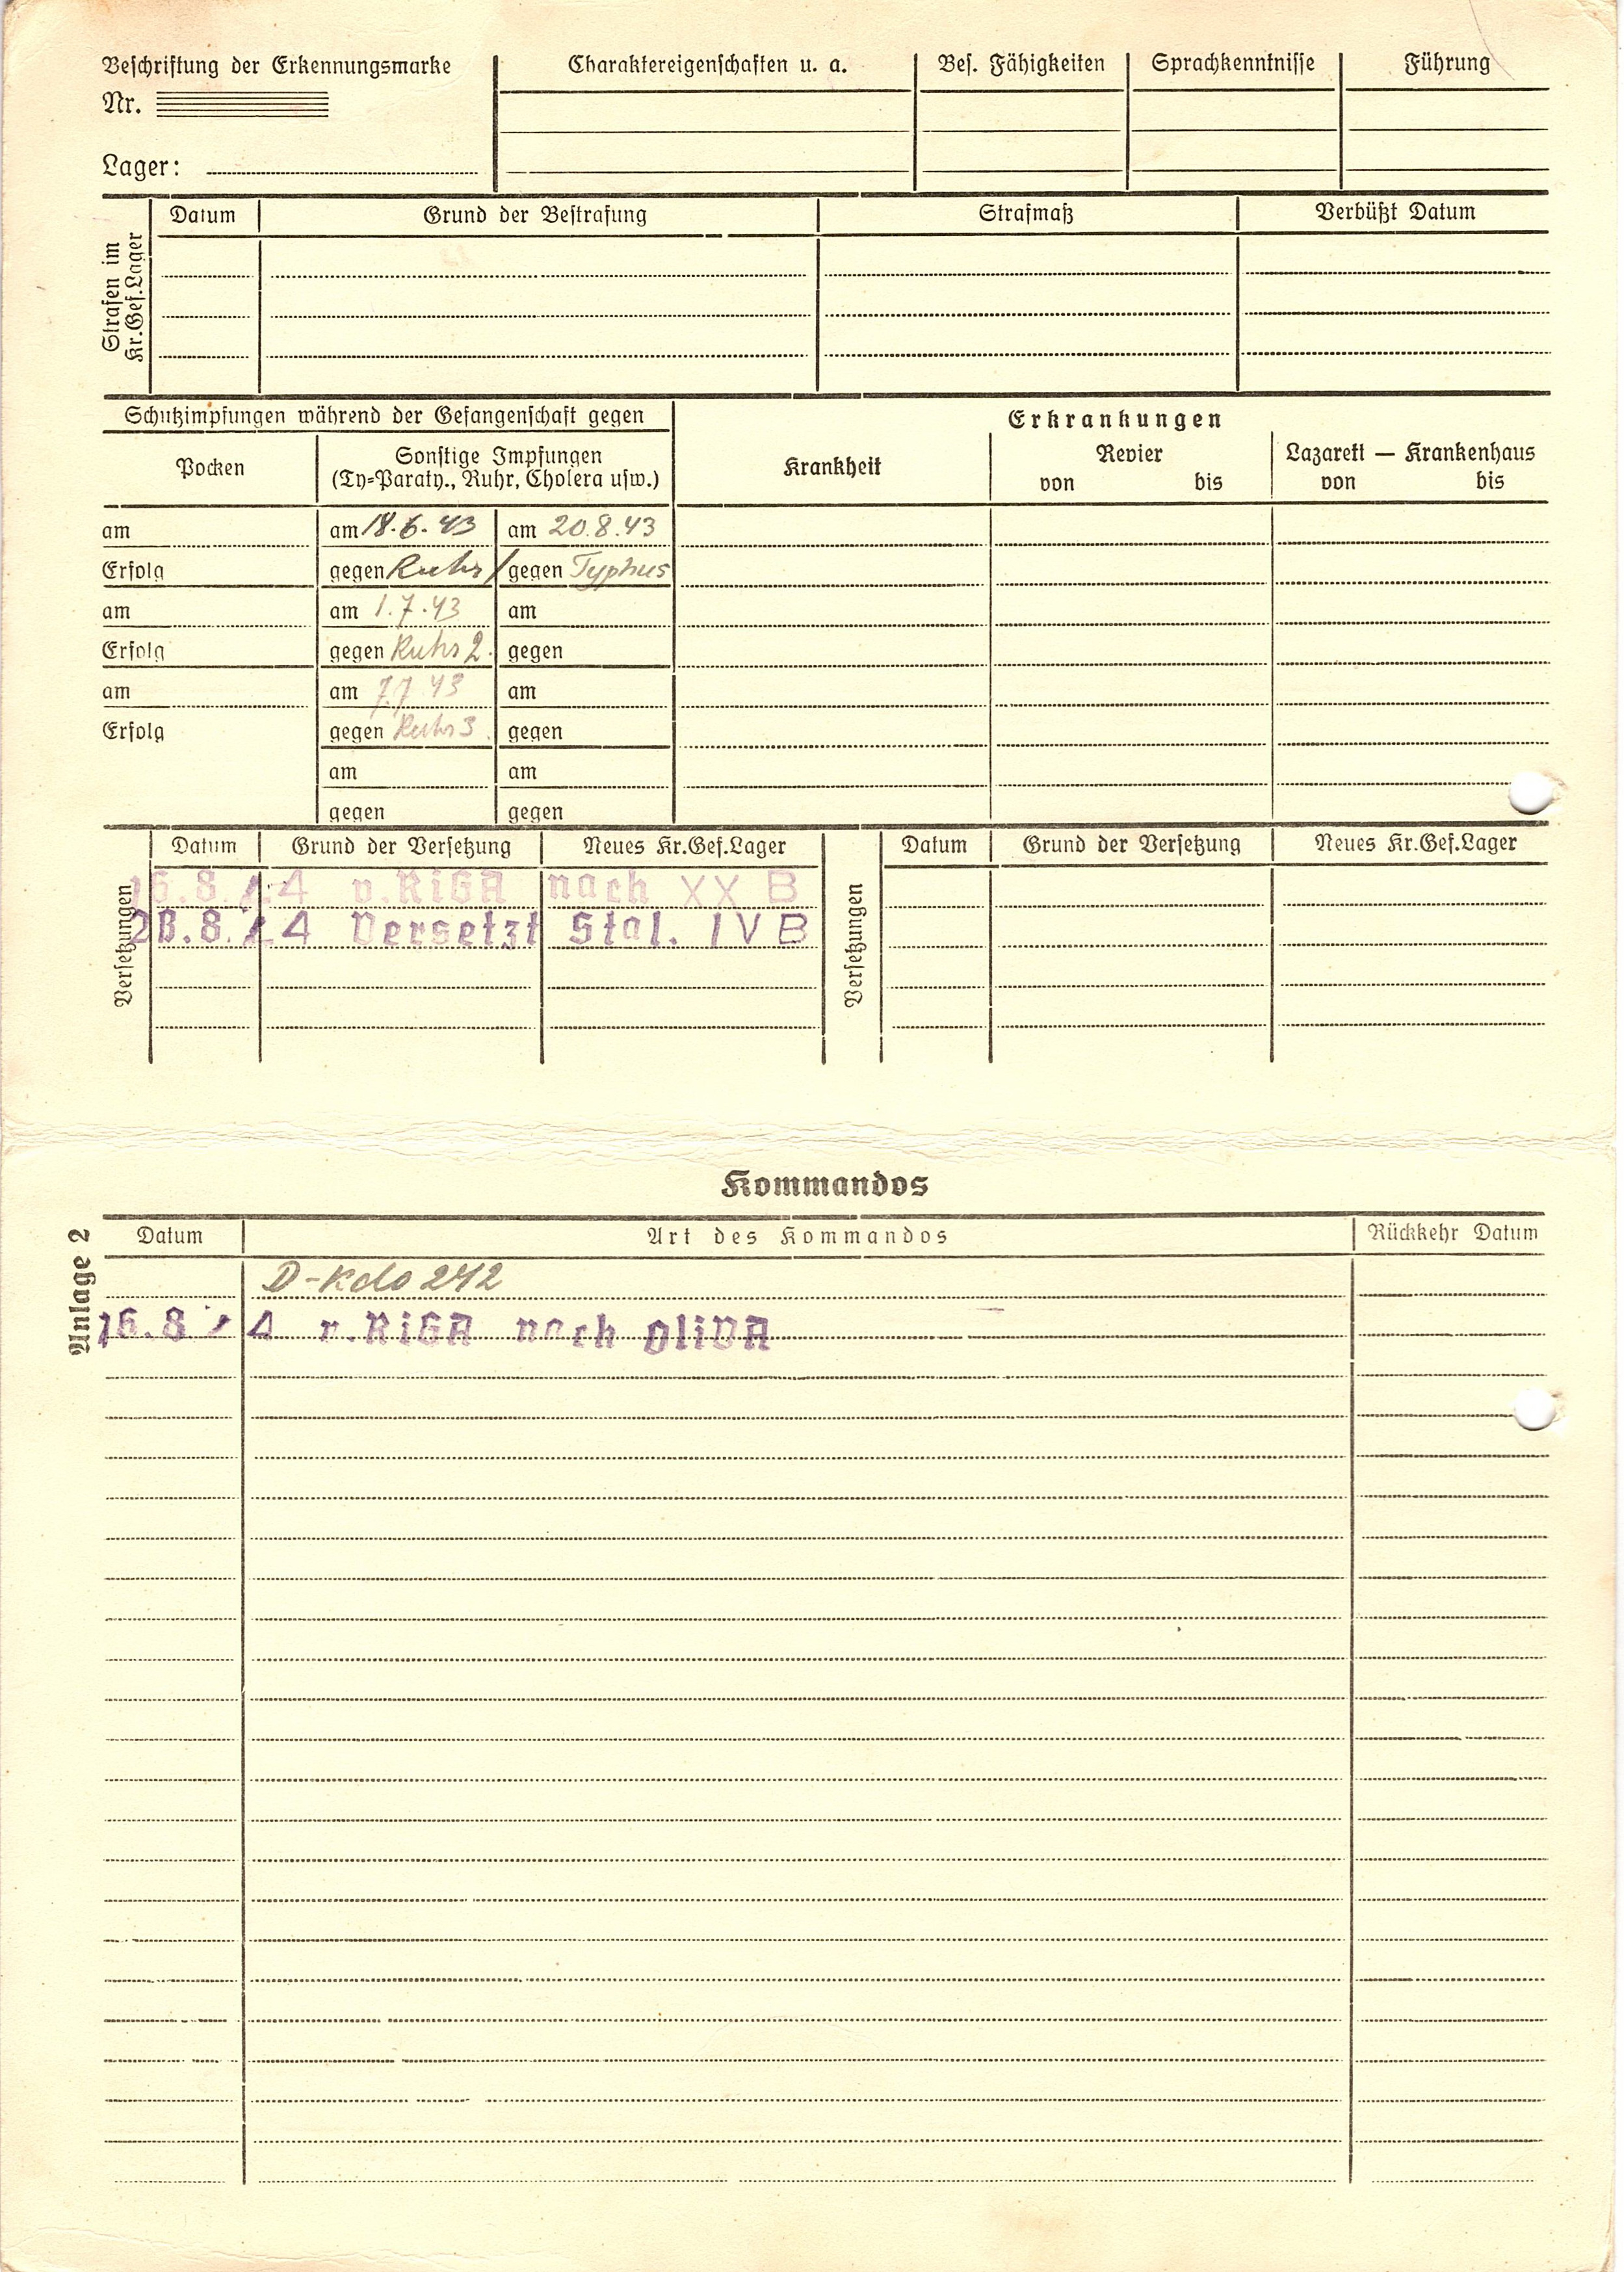 Beschriftung der Erkennungsmarke
Nr.
Lager:
Charaktereigenschaften u. a.
Bes. Fähigkeiten
Sprachkenntnisse
Führung
Strafen im
Kr.Gef.Lager
Datum Grund der Bestrafung Strafmaß Verbüßt Datum
Schutzimpfungen während der Gefangenschaft gegen
Pocken
Sonstige Impfungen
(Ty=Paraty., Ruhr, Cholera usw.)
am am 18.6.43 am 20.8.43
Erfolg gegen Ruhr / gegen Typhus
am am 1.7.43 am
Erfolg gegen Ruhr 2. gegen
am am 7.7.43 am
Erfolg gegen Ruhr 3. gegen
am am
gegen gegen
Erkrankungen
Krankheit
Revier
von bis
Lazarett — Krankenhaus
von bis
Versetzungen
Datum Grund der Versetzung Neues Kr.Gef.Lager
16.8. 4 v.RiGA nach XX B
8. 4 Versetzt Stal. IV B
Versetzungen
Datum Grund der Versetzung Neues Kr.Gef.Lager
Kommandos
Anlage 2
Datum Art des Kommandos Rückkehr Datum
D-Kdo 242
16.8 4 v.RiGA nach OliVA